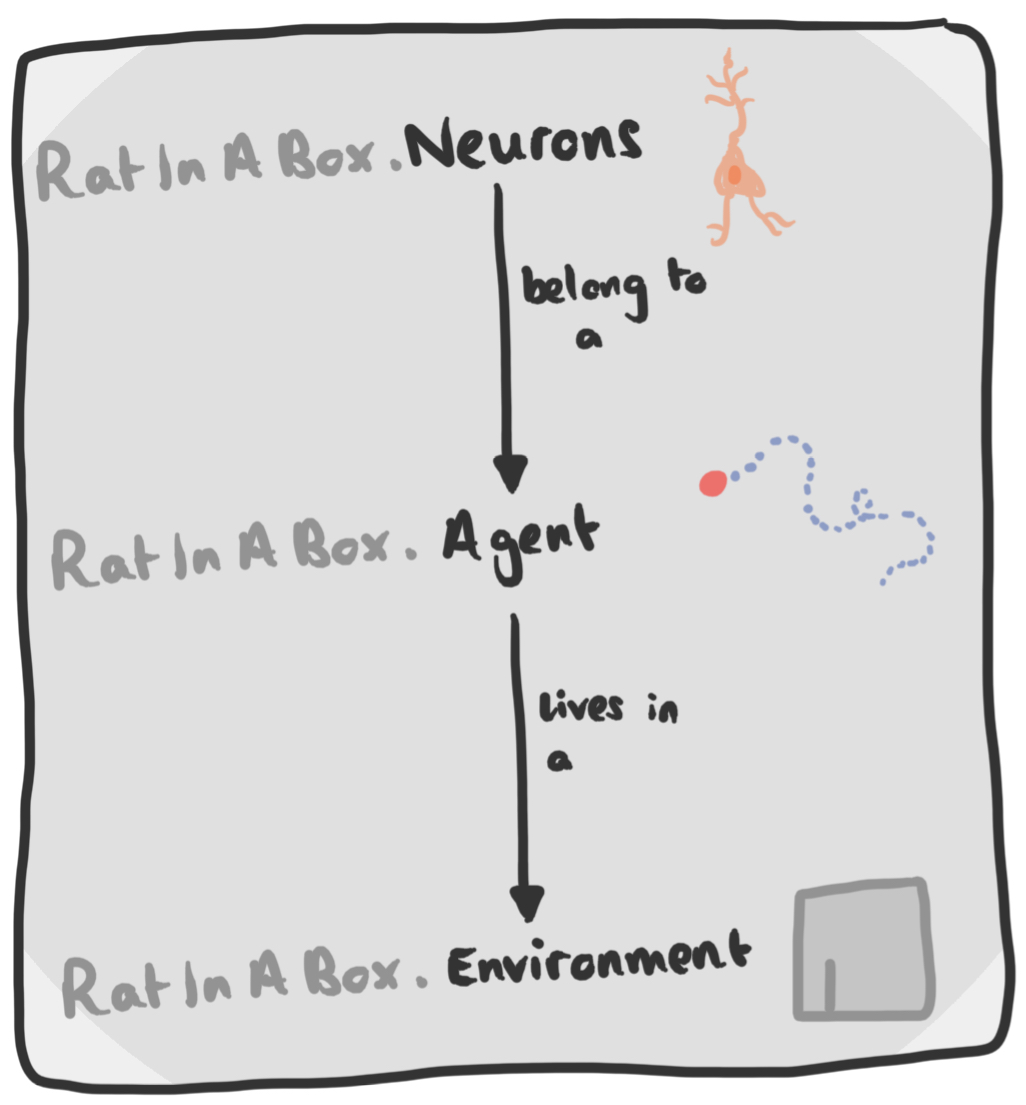 RatInABox.Neurons
belong to
a
RatInABox. Agent
Lives in
a
RatInABox. Environment